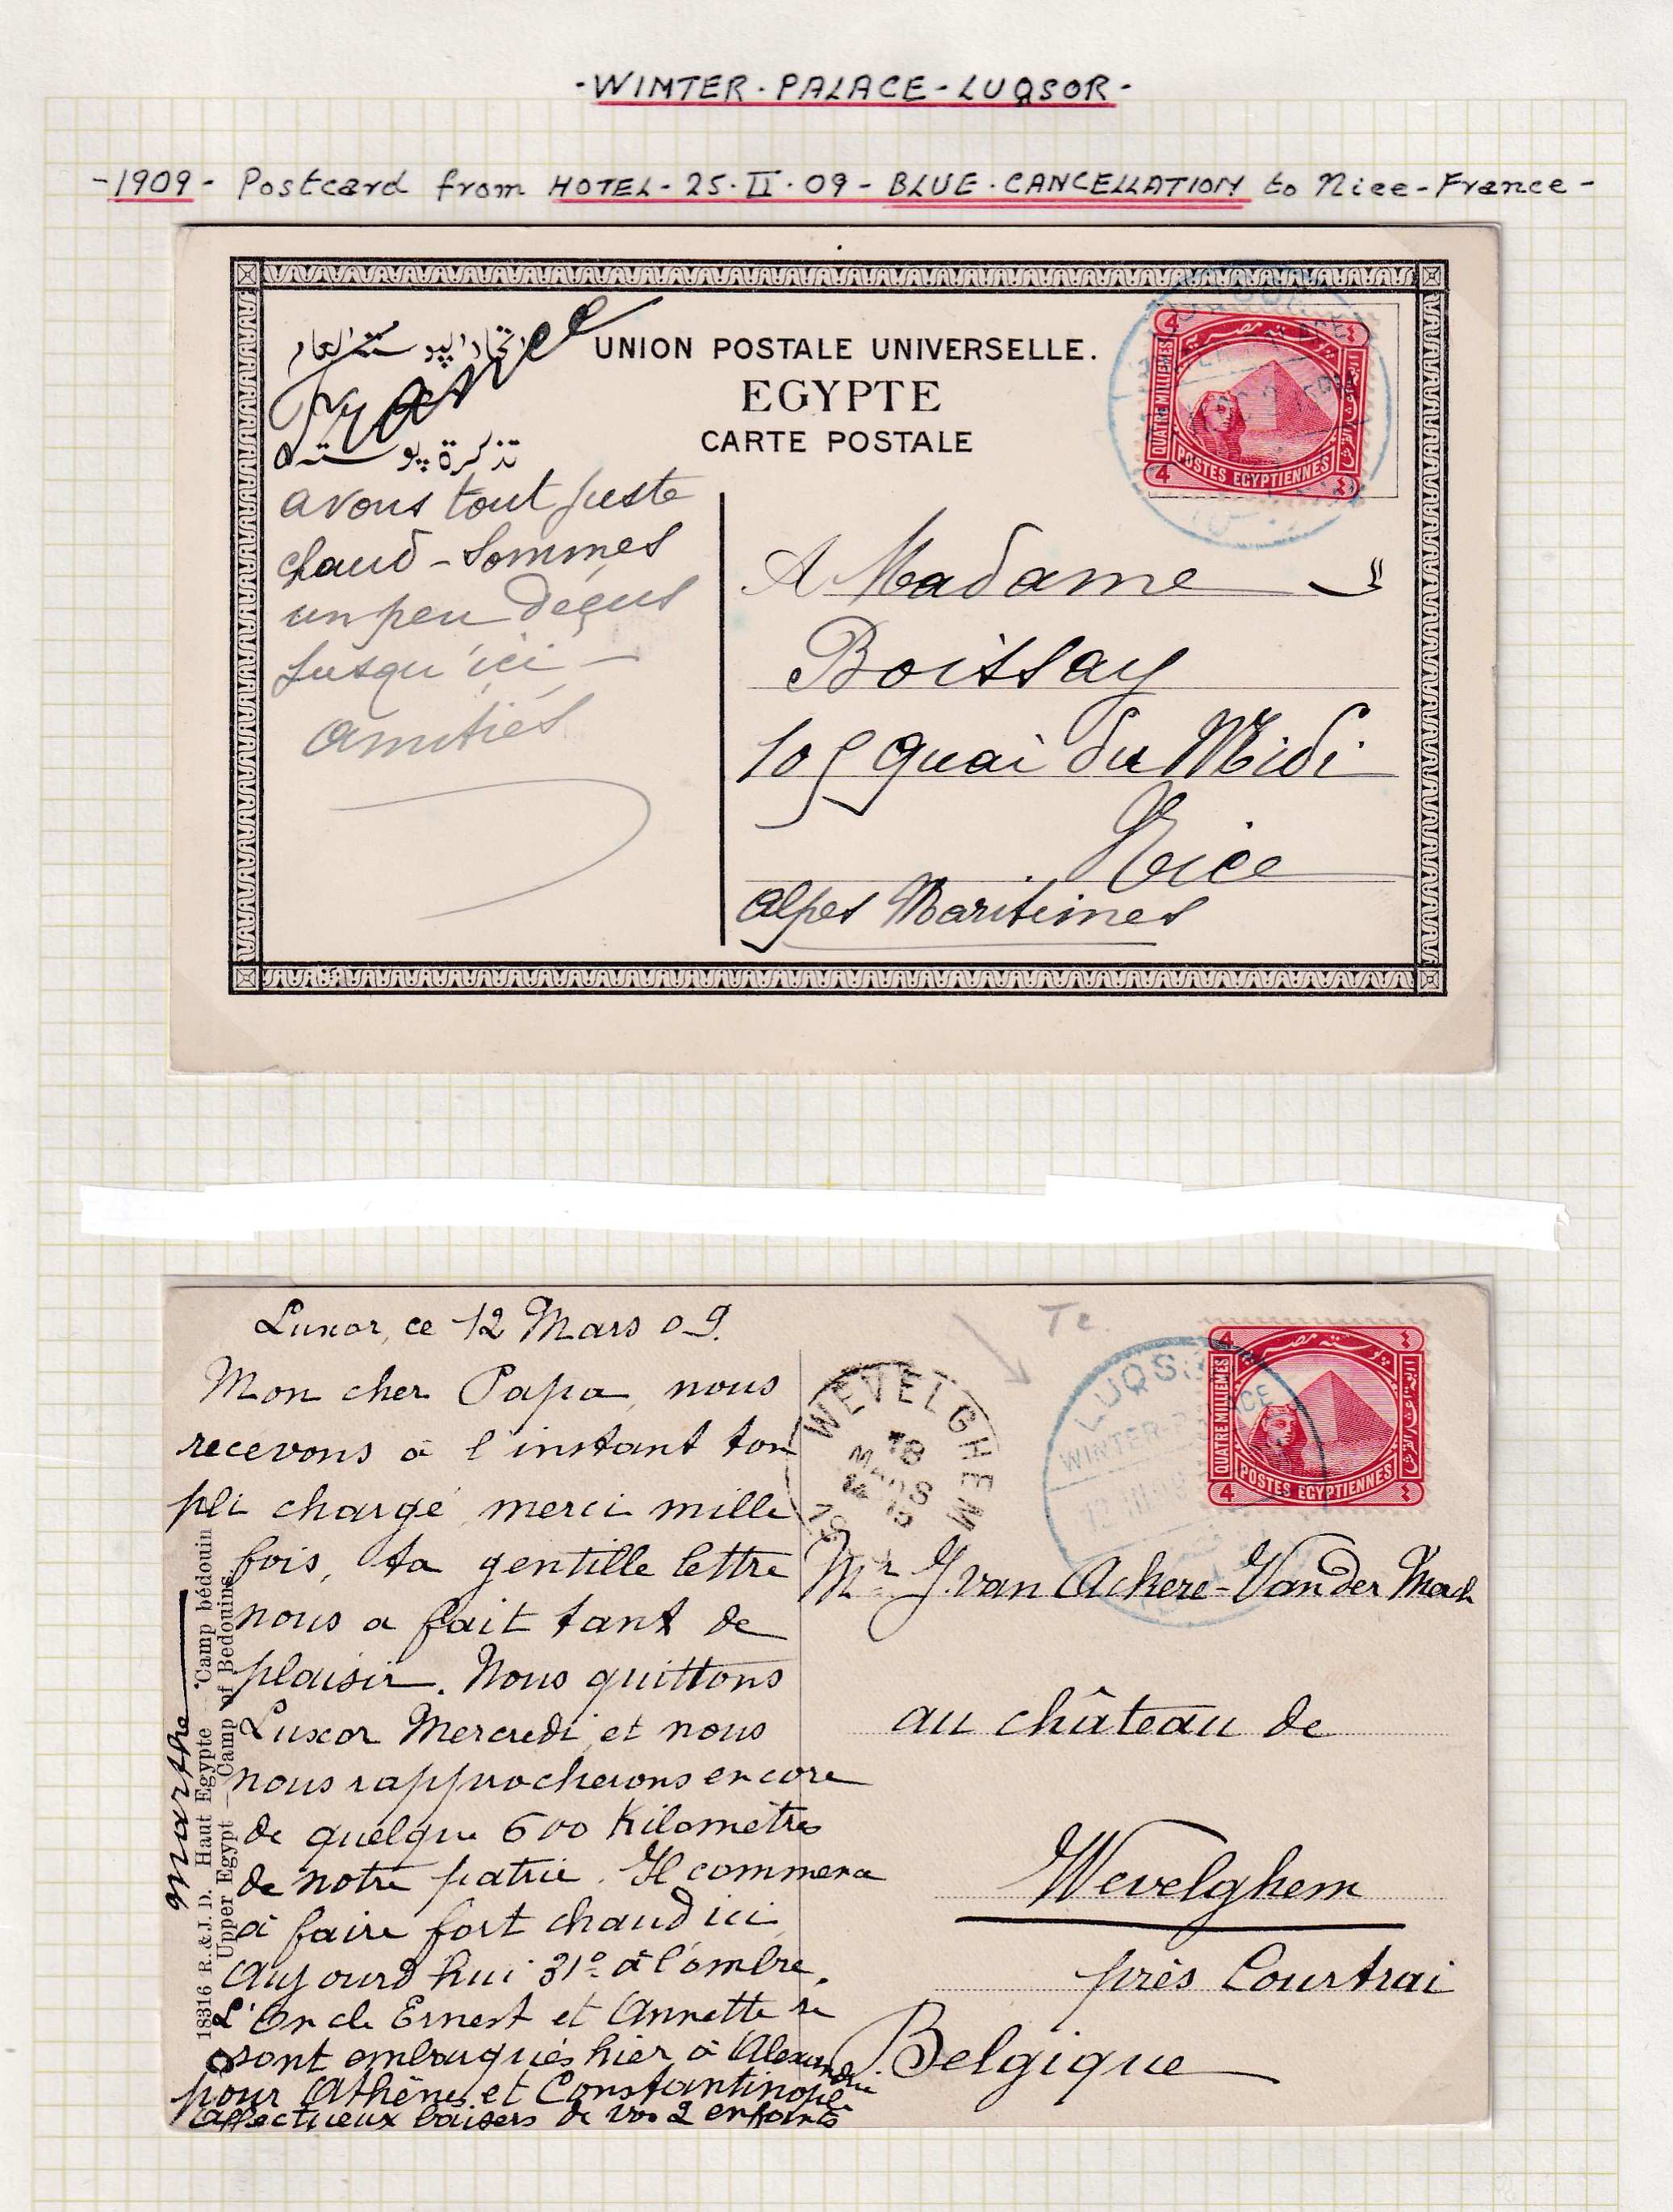 -WINTER-PALACE-LUQSOR-
-1909- Postcard from HOTEL-25.II.09-BLUE.CANCELLATION to Nice-France-
اتحاد البوستة العام
France
تذكرة بوستة
UNION POSTALE UNIVERSELLE.
EGYPTE
CARTE POSTALE
4
QUATRE MILLIEMES
POSTES EGYPTIENNES
4
بوسته مصريه
avons tout juste
chaud - Sommes
un peu déçus
Jusqu'ici -
amitiés
A Madame
Boissay
105 quai du Midi
Nice
Alpes Maritimes
Luxor, ce 12 Mars 09.
Mon cher Papa, nous
recevons à l'instant ton
pli chargé, merci mille
fois, ta gentille lettre
nous a fait tant de
plaisir. Nous quittons
Luxor Mercredi, et nous
nous rapprocherons encore
de quelque 600 Kilomètres
de notre patrie. Il commence
à faire fort chaud ici
Aujourd'hui 31° à l'ombre.
L'Oncle Ernest et Annette se
sont embarqués hier à Alexandrie
pour Athènes et Constantinople
affectueux baisers de vos 2 enfants
Marthe
18316 R.&J.D. Haut Egypte - Camp bédouin
Upper Egypt - Camp of Bedouins.
WEVELGHEM
18
MARS
Te.
LUQSOR
WINTER-PALACE
12 III 09
4
QUATRE MILLIEMES
POSTES EGYPTIENNES
4
بوسته مصريه
Mr J. van Ackere-Van der
au château de
Wevelghem
près Courtrai
Belgique